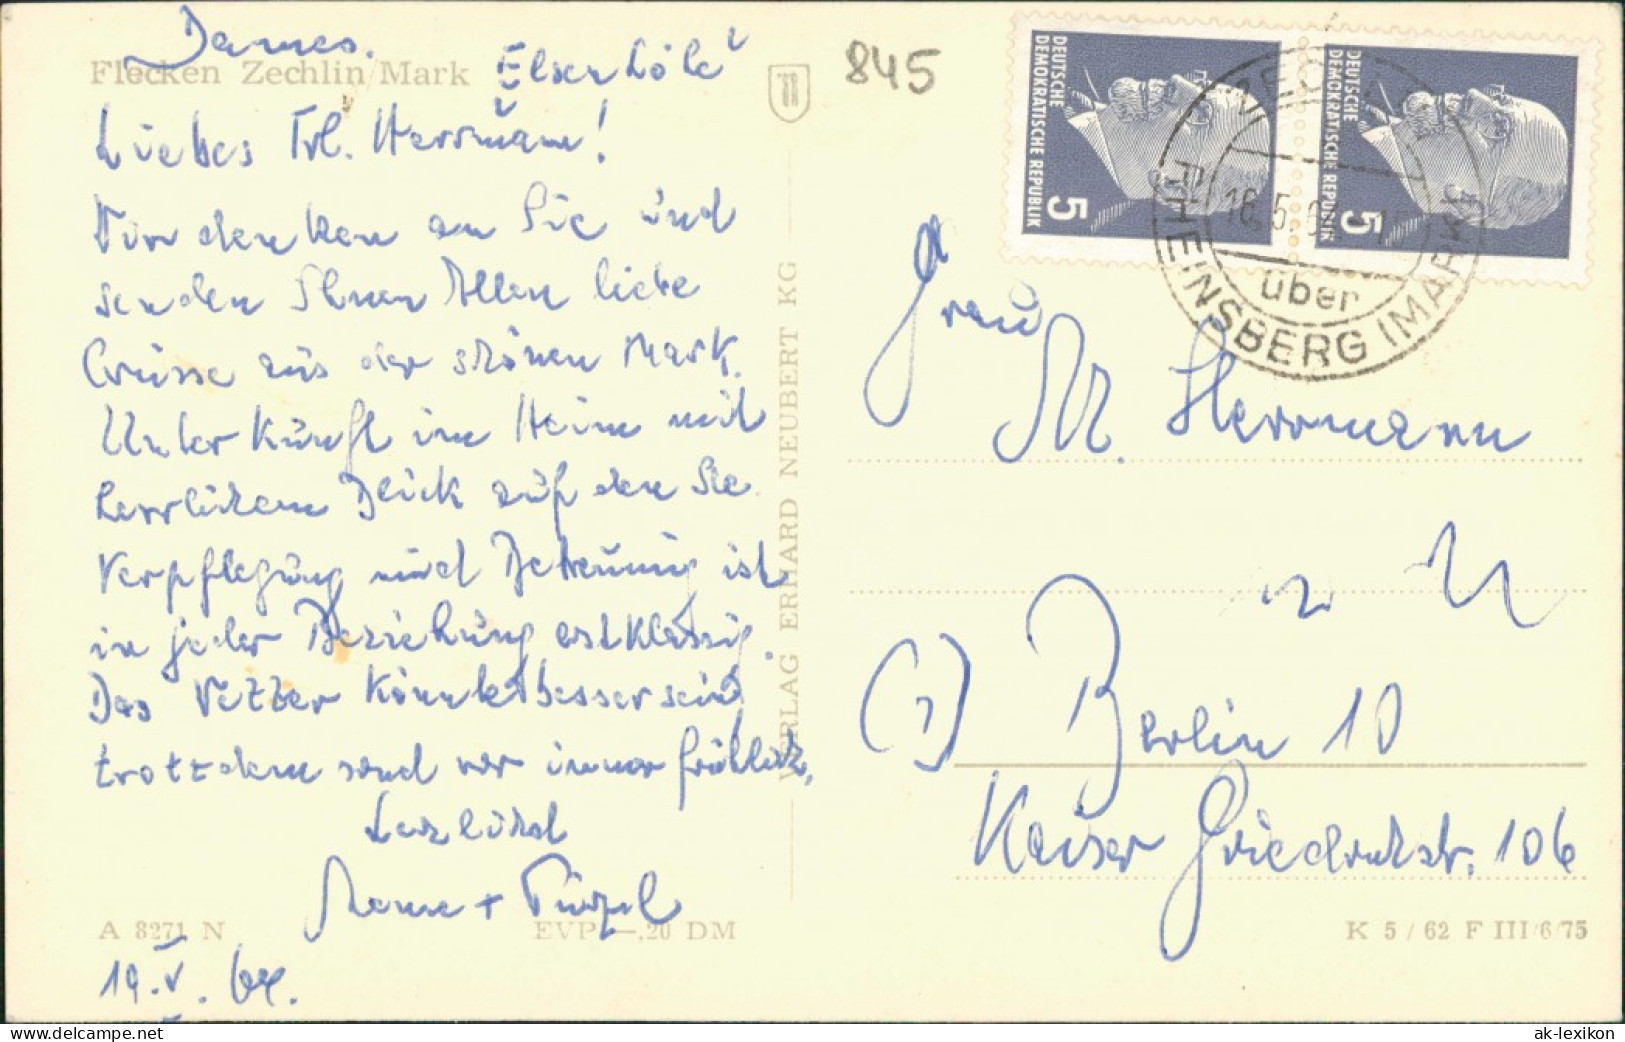 Flecken Zechlin/Mark
845
Liebes Frl. Herrmann!
Wir denken an Sie und
senden Ihnen Allen liebe
Grüsse aus der schönen Mark.
Unterkunft im Heim mit
herrlichem Blick auf den See.
Verpflegung und Betreuung ist
in jeder Beziehung erstklassig.
Das Wetter könnte besser sein,
trotzdem sind wir immer fröhlich.
Herzlichst
19. V. 64.
A 8271 N
EVP —,20 DM
VERLAG ERHARD NEUBERT KG
DEUTSCHE
DEMOKRATISCHE REPUBLIK
5
DEUTSCHE
DEMOKRATISCHE REPUBLIK
5
über
RHEINSBERG (MARK)
Frau
M. Herrmann
(1) Berlin 10
Kaiser Friedrichstr. 106
K 5 / 62 F III/6/75
Flecken
ak-lexikon